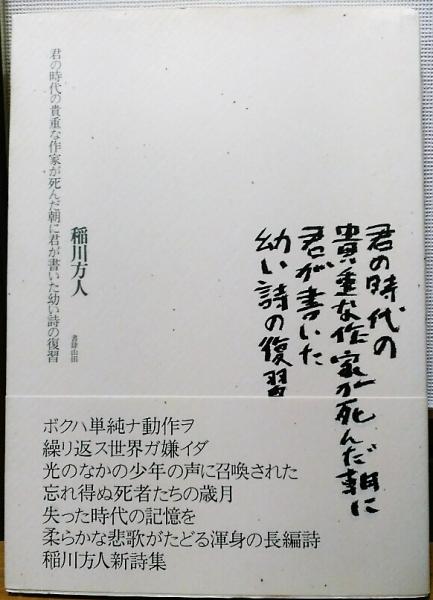 君の時代の
貴重な作家が死んだ朝に
君が書いた
幼い詩の復習
稲川方人
君の時代の貴重な作家が死んだ朝に君が書いた幼い詩の復習
書肆山田
ボクハ単純ナ動作ヲ
繰リ返ス世界ガ嫌イダ
光のなかの少年の声に召喚された
忘れ得ぬ死者たちの歳月
失った時代の記憶を
柔らかな悲歌がたどる渾身の長編詩
稲川方人新詩集